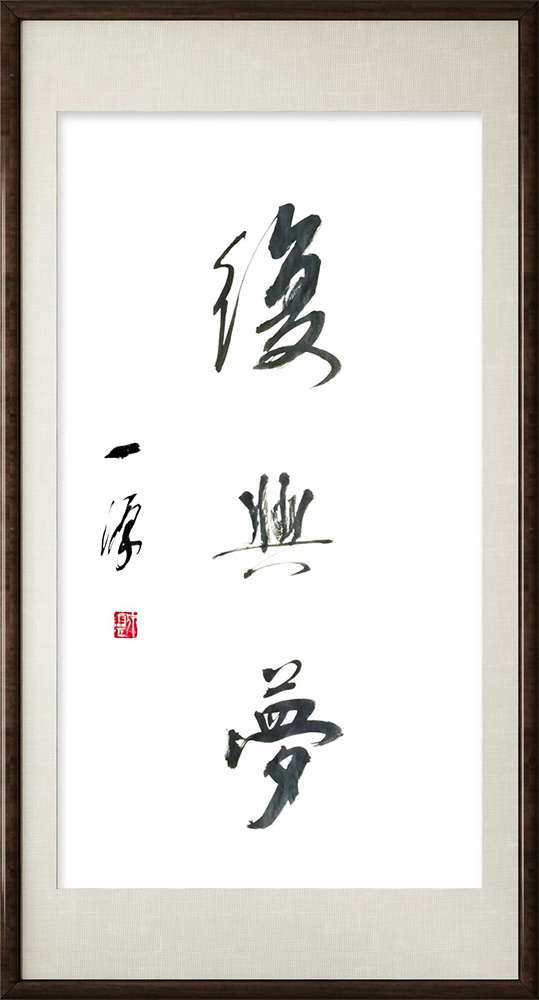 復興夢
一源